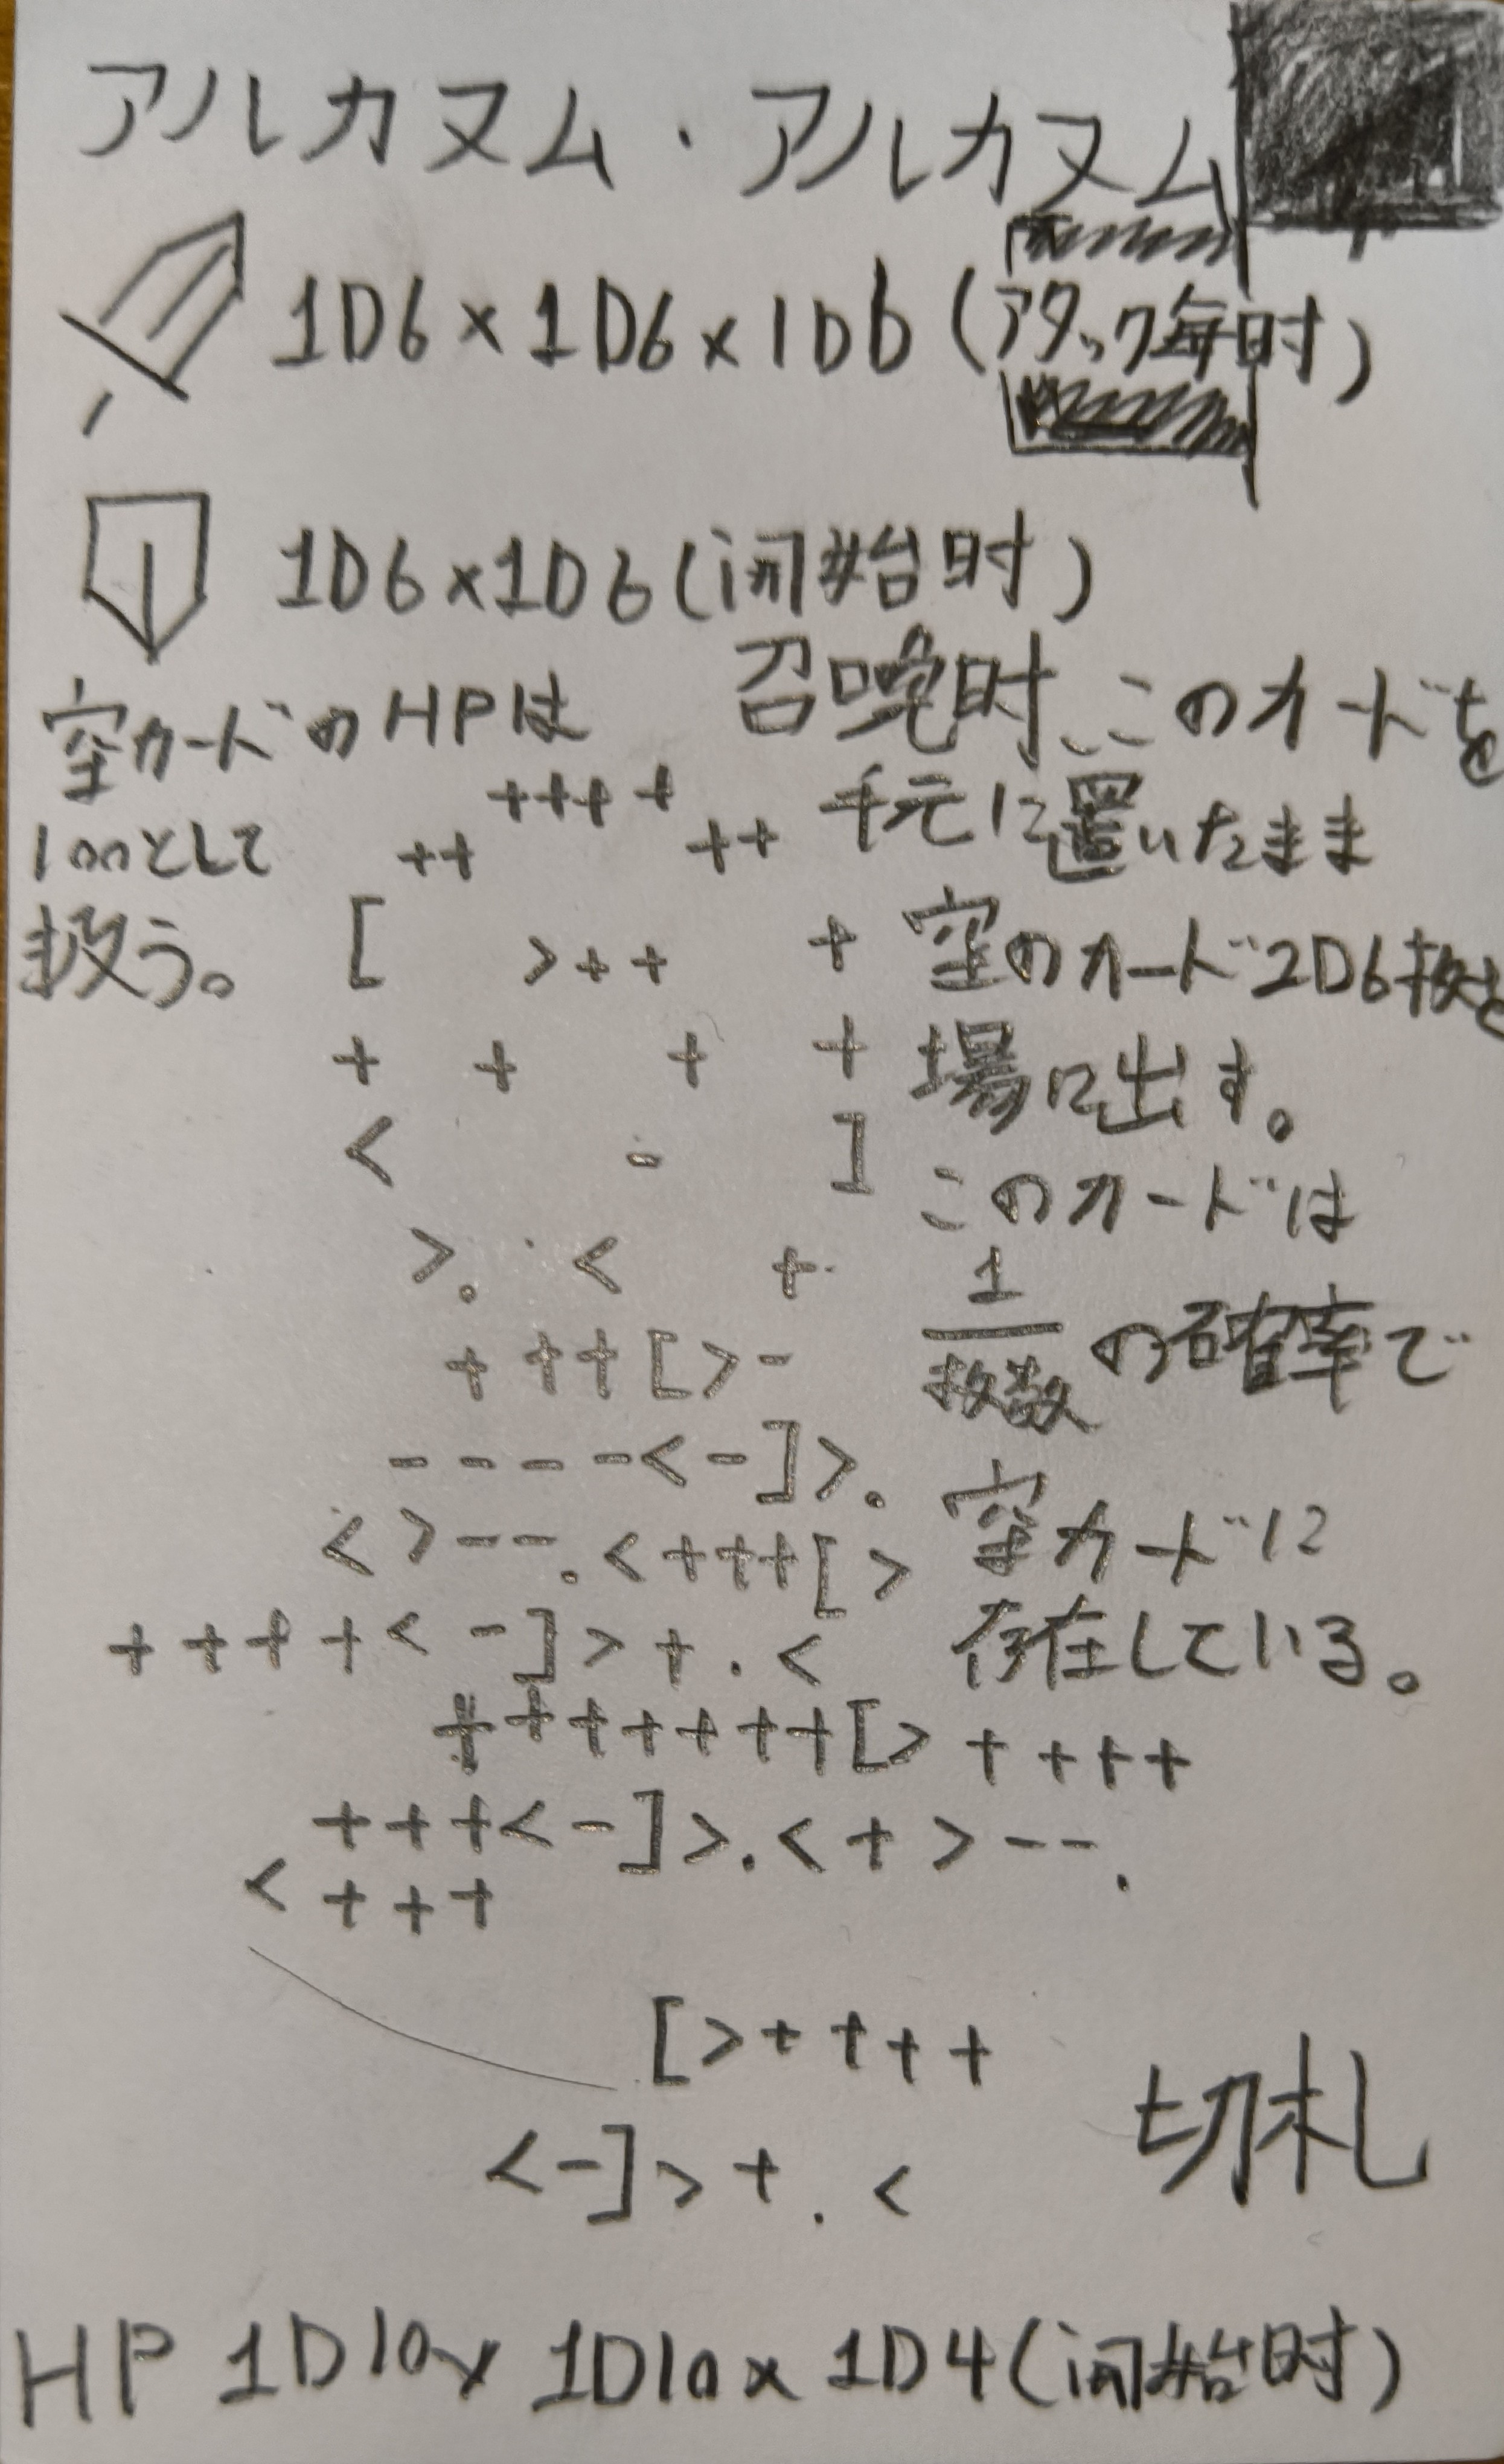 アルカヌム・アルカヌム
1D6×1D6×1D6(アタック毎時)
1D6×1D6(開始時)
空カードのHPは
100として
扱う。
召喚時、このカードを
手元に置いたまま
空のカード2D6枚を
場に出す。
このカードは
1/枚数の確率で
空カードに
存在している。
++++
++ ++
[ >++ +
+ + + +
< - ]
>. < +
+ ++[>-
----<-]>.
<>--.<+++[>
++++<-]>+.<
+++++++[>++++
+++<-]>.<+>--.
<+++
[>++++
<-]>+.<
切札
HP 1D10×1D10×1D4(開始時)